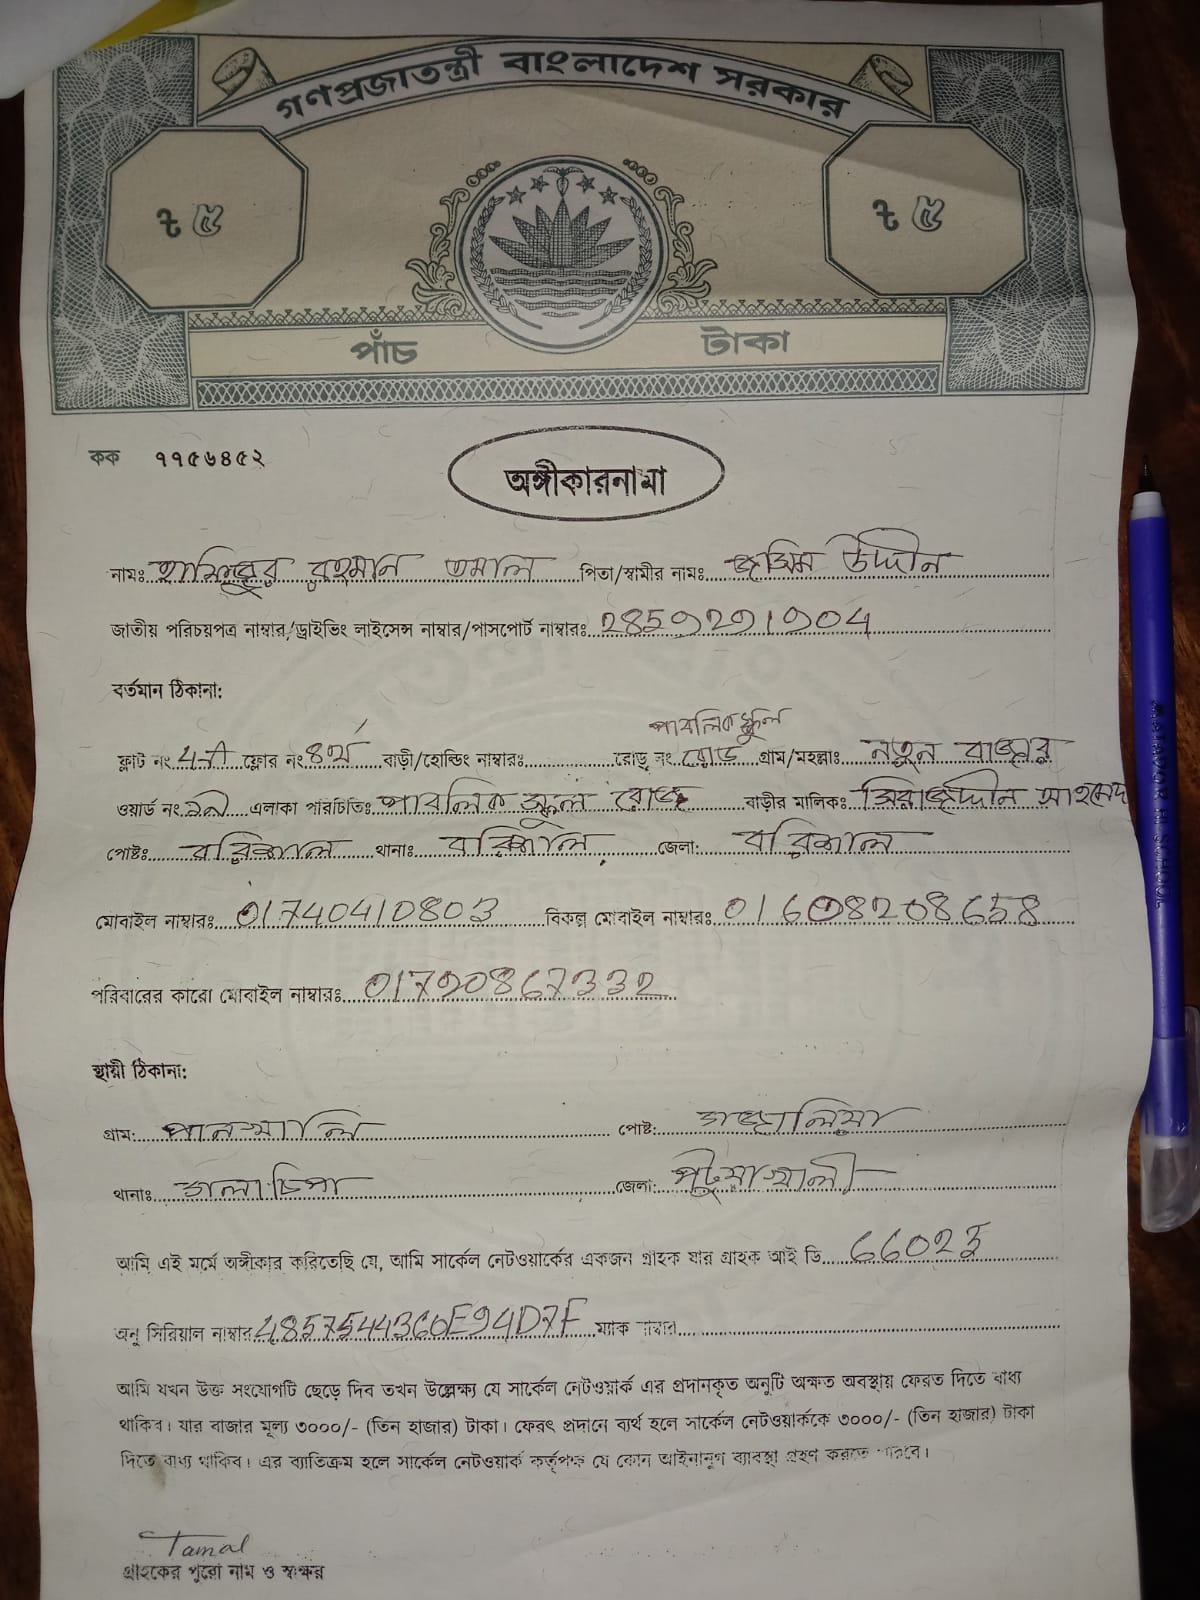 গণপ্রজাতন্ত্রী বাংলাদেশ সরকার
৳ ৫ ৳ ৫
পাঁচ টাকা
কক ৭৭৫৬৪৫২
অঙ্গীকারনামা
নামঃ রহমান তমাল পিতা/স্বামীর নামঃ জসিম উদ্দীন
জাতীয় পরিচয়পত্র নাম্বার/ড্রাইভিং লাইসেন্স নাম্বার/পাসপোর্ট নাম্বারঃ
বর্তমান ঠিকানা:
পাবলিক স্কুল
ফ্লাট নং ফ্লোর নং ৪র্থ বাড়ী/হোল্ডিং নাম্বারঃ রোড নং রোড গ্রাম/মহল্লাঃ নতুন বাজার
ওয়ার্ড নং এলাকা পরিচিতিঃ পাবলিক স্কুল রোড বাড়ীর মালিকঃ সিরাজুদ্দীন আহমেদ
পোষ্টঃ বরিশাল থানাঃ বরিশাল জেলা: বরিশাল
মোবাইল নাম্বারঃ 01740410803 বিকল্প মোবাইল নাম্বারঃ
পরিবারের কারো মোবাইল নাম্বারঃ
স্থায়ী ঠিকানা:
গ্রাম: পোষ্ট:
থানাঃ গলাচিপা জেলা: পটুয়াখালী
আমি এই মর্মে অঙ্গীকার করিতেছি যে, আমি সার্কেল নেটওয়ার্কের একজন গ্রাহক যার গ্রাহক আই ডি 66023
অনু সিরিয়াল নাম্বার ম্যাক নাম্বার
আমি যখন উক্ত সংযোগটি ছেড়ে দিব তখন উল্লেক্ষ্য যে সার্কেল নেটওয়ার্ক এর প্রদানকৃত অনুটি অক্ষত অবস্থায় ফেরত দিতে বাধ্য
থাকিব। যার বাজার মূল্য ৩০০০/- (তিন হাজার) টাকা। ফেরৎ প্রদানে ব্যর্থ হলে সার্কেল নেটওয়ার্ককে ৩০০০/- (তিন হাজার) টাকা
দিতে বাধ্য থাকিব। এর ব্যাতিক্রম হলে সার্কেল নেটওয়ার্ক কর্তৃপক্ষ যে কোন আইনানুগ ব্যাবস্থা গ্রহণ করতে পারবে।
Tamal
গ্রাহকের পুরো নাম ও স্বাক্ষর